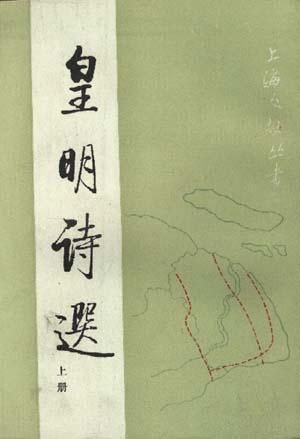 上海文献丛书
皇明诗選
上册